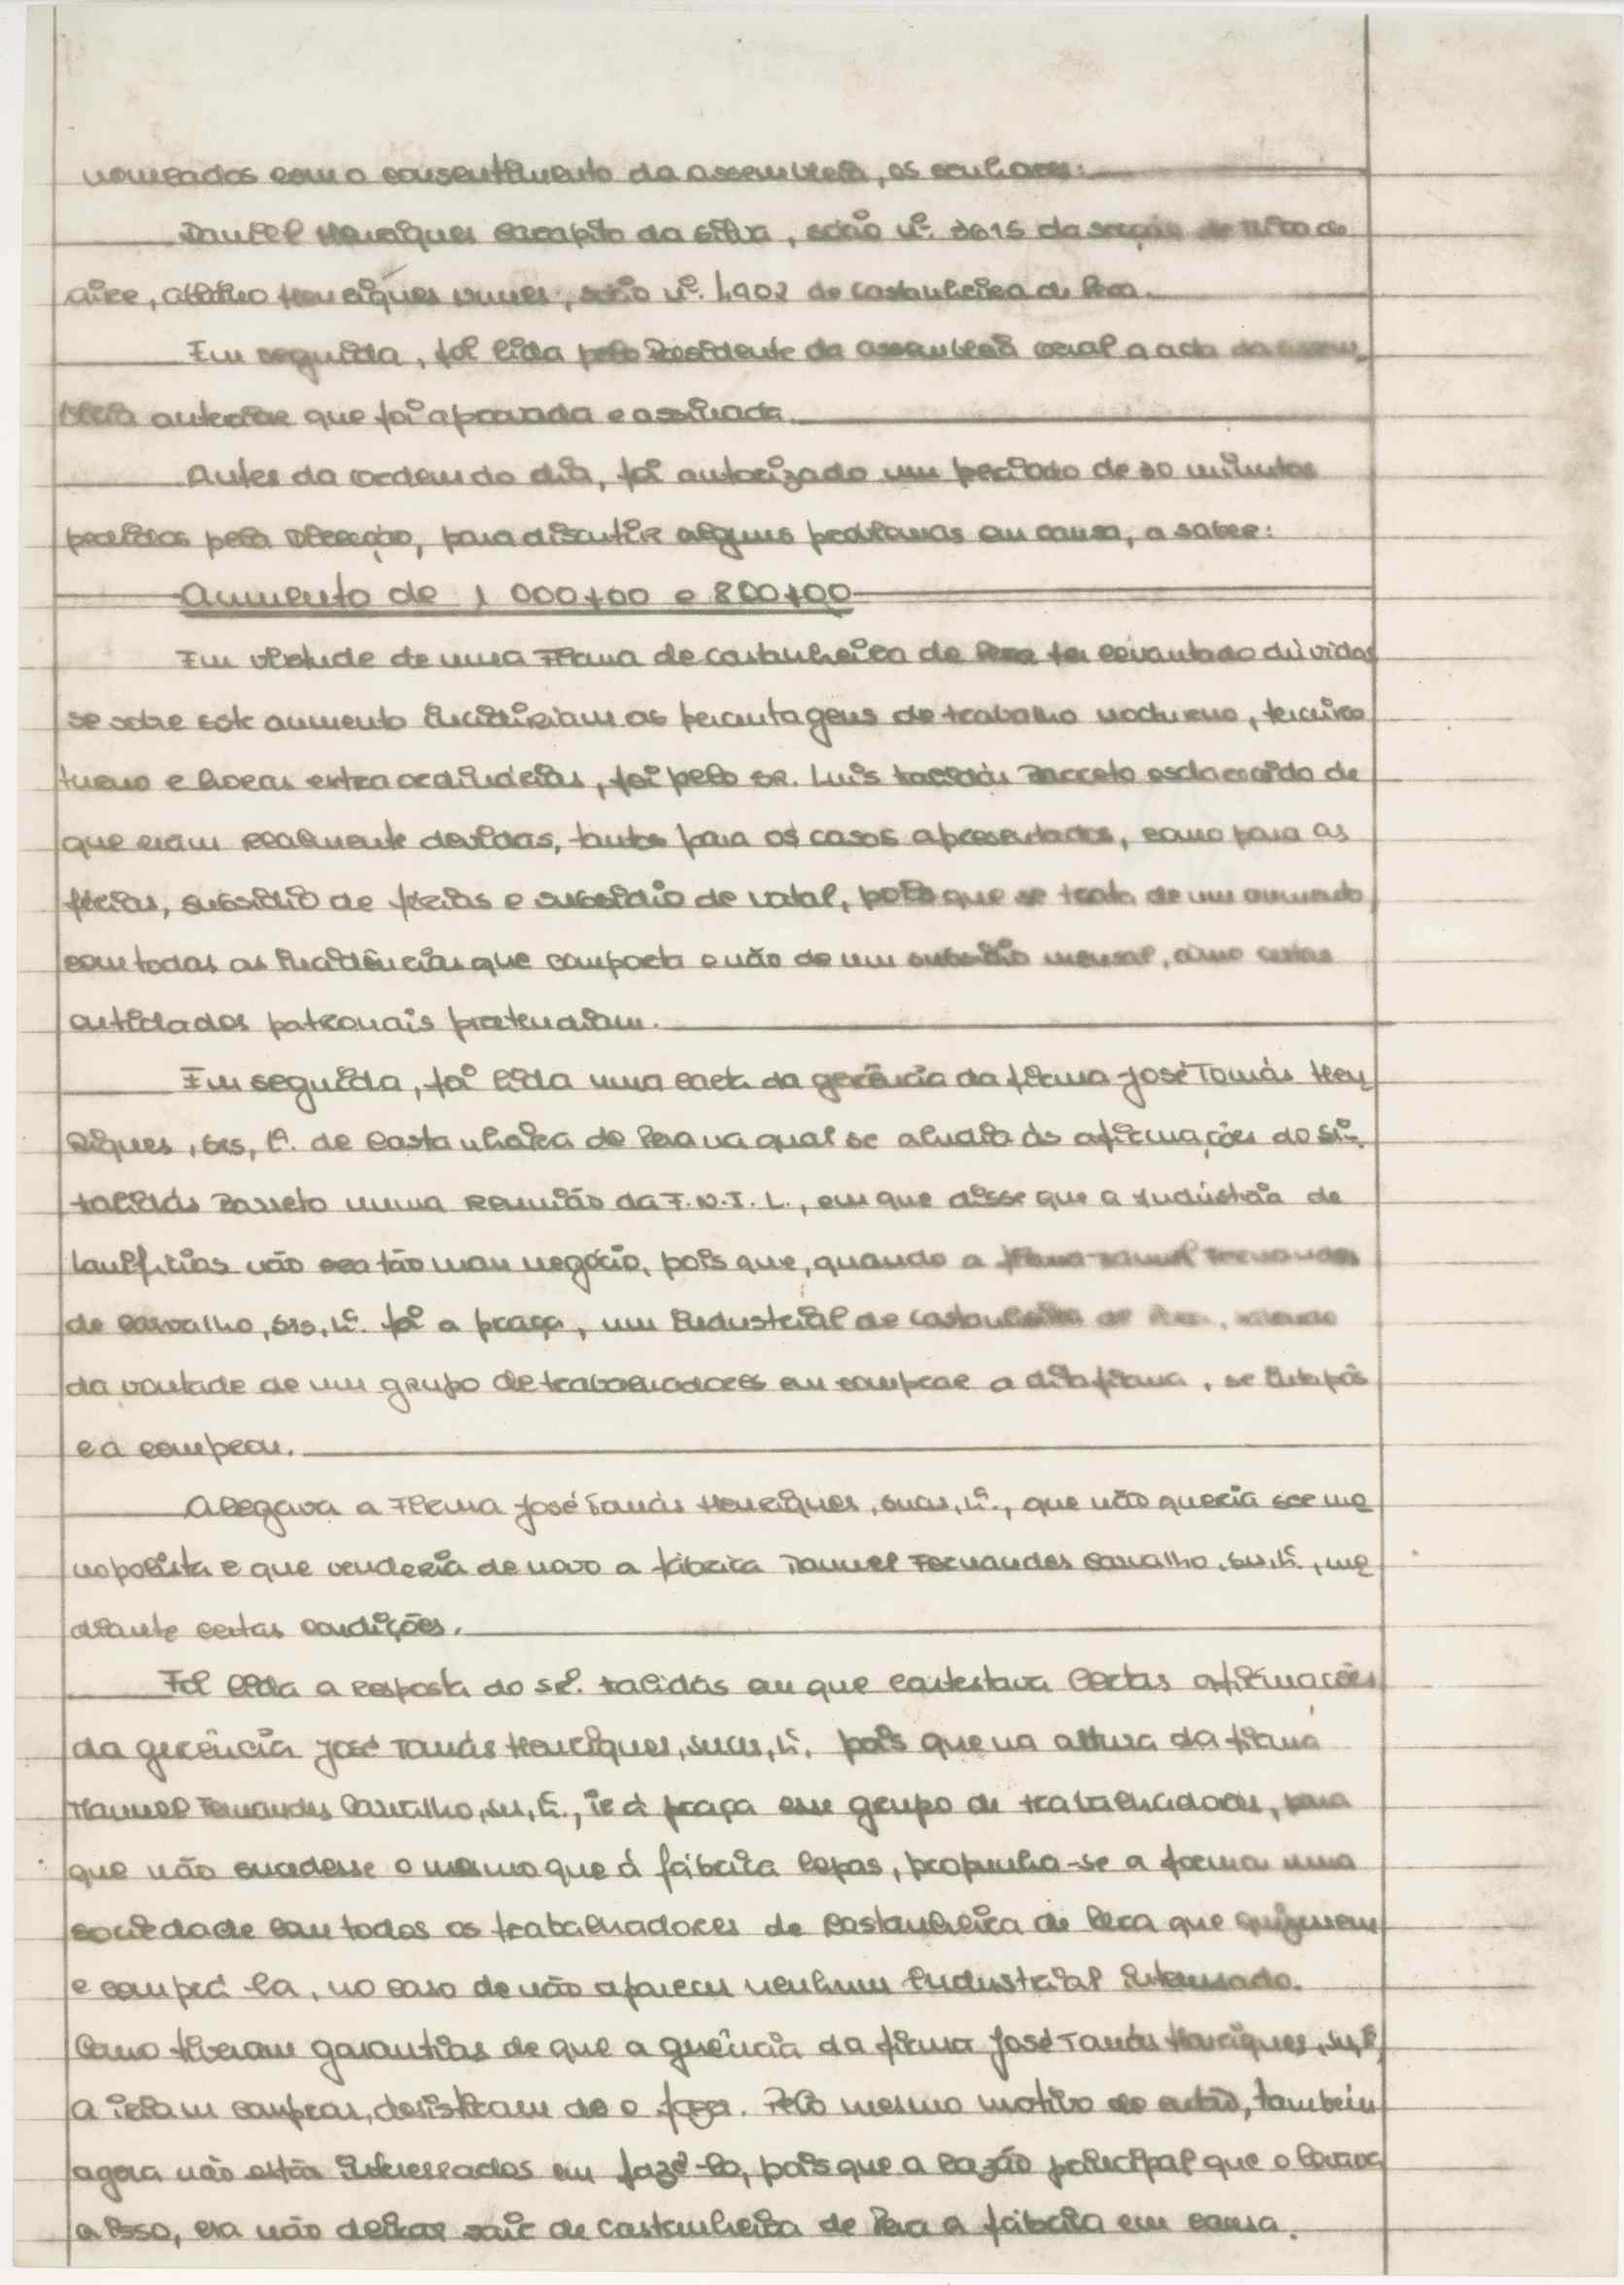 nomeados com o consentimento da assembleia, os senhores:
Daniel Henriques Carapito da Silva, sócio nº. 3615 da secção de
Aire, Albino Henriques Nunes, sócio nº. 4902 de Castanheira de Pera.
Em seguida, foi lida pelo Presidente da Assembleia Geral a acta da assem-
bleia anterior que foi aprovada e assinada.
Antes da ordem do dia, foi autorizado um período de 30 minutos
pedidos pela Direcção, para discutir alguns problemas em causa, a saber:
Aumento de 1 000$00 e 800$00
Em virtude de uma Firma de Castanheira de Pera ter levantado dúvidas
se sobre este aumento incidiriam as percentagens de trabalho nocturno, terceiro
turno e horas extraordinárias, foi pelo Sr. Luís Kalidás Barreto esclarecido de
que eram realmente devidas, tanto para os casos apresentados, como para as
férias, subsídio de férias e subsídio de Natal, pois que se trata de um aumento
com todas as incidências que comporta e não de um subsídio mensal, como certas
entidades patronais pretendiam.
Em seguida, foi lida uma carta da gerência da firma José Tomás Hen
riques, Srs, Lª. de Castanheira de Pera na qual se aludia às afirmações do Sr.
Kalidás Barreto numa reunião da F.N.I.L., em que disse que a Indústria de
lanifícios não era tão mau negócio, pois que, quando a firma Manuel Fernandes
de Carvalho, Srs, Lª. foi a praça, um industrial de Castanheira de Pera, sabendo
da vontade de um grupo de trabalhadores em comprar a dita firma, se antepôs
e a comprou.
Alegava a Firma José Tomás Henriques, Sucrs, Lª., que não queria ser mo
nopolista e que venderia de novo a fábrica Manuel Fernandes Carvalho, Srs, Lª., me
diante certas condições.
Foi lida a resposta do Sr. Kalidás em que contestava certas afirmações
da gerência José Tomás Henriques, Sucrs, Lª, pois que na altura da firma
Manuel Fernandes Carvalho, Srs, Lª., ir à praça esse grupo de trabalhadores, para
que não sucedesse o mesmo que à fábrica Cepas, propunha-se a formar uma
sociedade com todos os trabalhadores de Castanheira de Pera que quisessem
e comprá-la, no caso de não aparecer nenhum industrial interessado.
Como tiveram garantias de que a gerência da firma José Tomás Henriques, Srs, Lª,
a iriam comprar, desistiram de o fazer. Pelo mesmo motivo de então, também
agora não estão interessados em fazê-lo, pois que a razão principal que o levava
a isso, era não deixar sair de Castanheira de Pera a fábrica em causa.